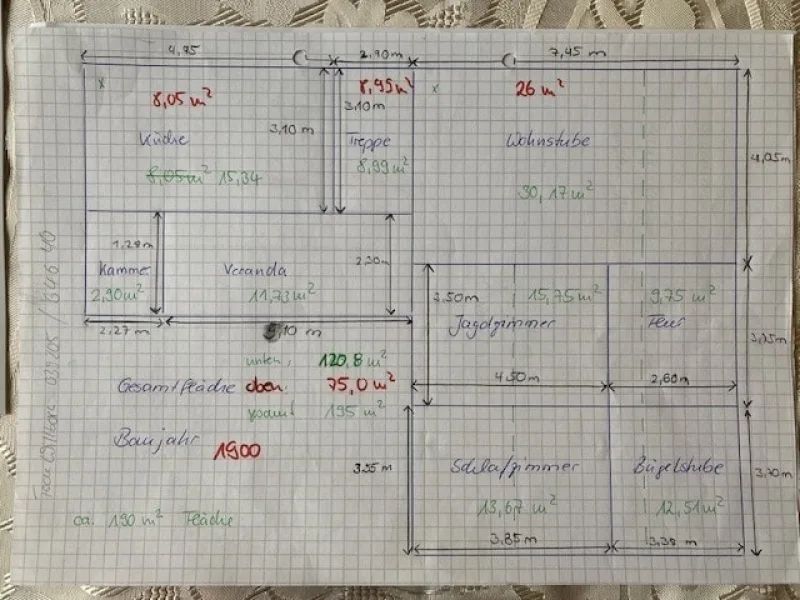 4,95
2,90 m
7,45 m
x
8,05 m²
8,95 m²
x
26 m²
3,10 m
3,10 m
Küche
Treppe
Wohnstube
4,05m
8,05 m² 15,34
8,99 m²
30,17 m²
1,28m
Kammer
Veranda
2,30m
2,90 m²
11,73 m²
3,50m
15,75 m²
9,75 m²
Jagdzimmer
Flur
2,27 m
5,10 m
unten:
120,8 m²
Gesamtfläche oben:
75,0 m²
4,50m
2,60m
gesamt
195 m²
Baujahr
1900
3,55 m
Schlafzimmer
Bügelstube
13,67 m²
12,51 m²
ca. 190 m² Fläche
3,85 m